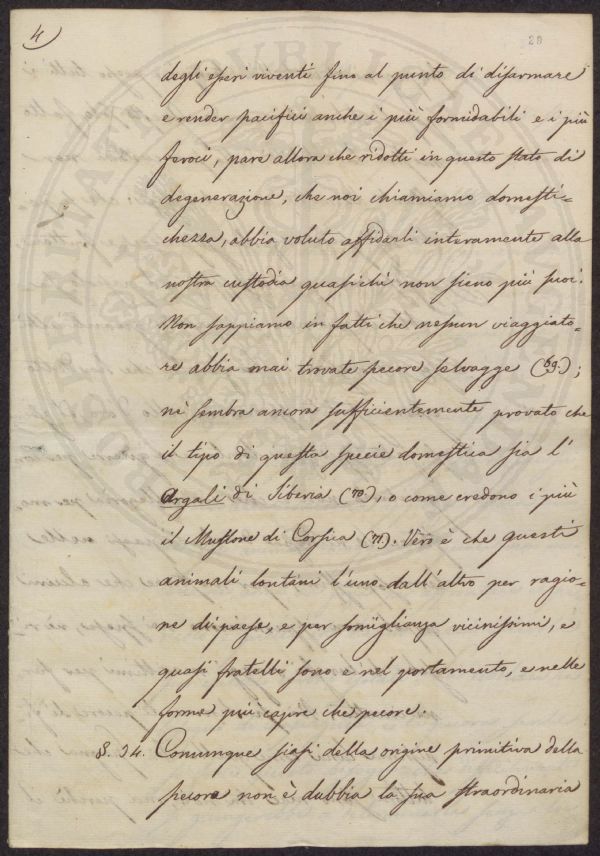 4)
28
degli esseri viventi fino al punto di disarmare
e render pacifici anche i più formidabili e i più
feroci, pare allora che ridotti in questo stato di
degenerazione, che noi chiamiamo domesti-
chezza, abbia voluto affidarli interamente alla
nostra custodia quasichè non sieno più suoi.
Non sappiamo in fatti che nessun viaggiato-
re abbia mai trovate pecore selvagge (69.);
nè sembra ancora sufficientemente provato che
il tipo di questa specie domestica sia l'
Argali di Siberia (70.), o come credono i più
il Muflone di Corsica (71.). Vero è che questi
animali lontani l'uno dall'altro per ragio-
ne di paese, e per somiglianza vicinissimi, e
quasi fratelli sono e nel portamento, e nelle
forme più capre che pecore.
§. 34. Comunque siasi della origine primitiva della
pecora non è dubbia la sua straordinaria